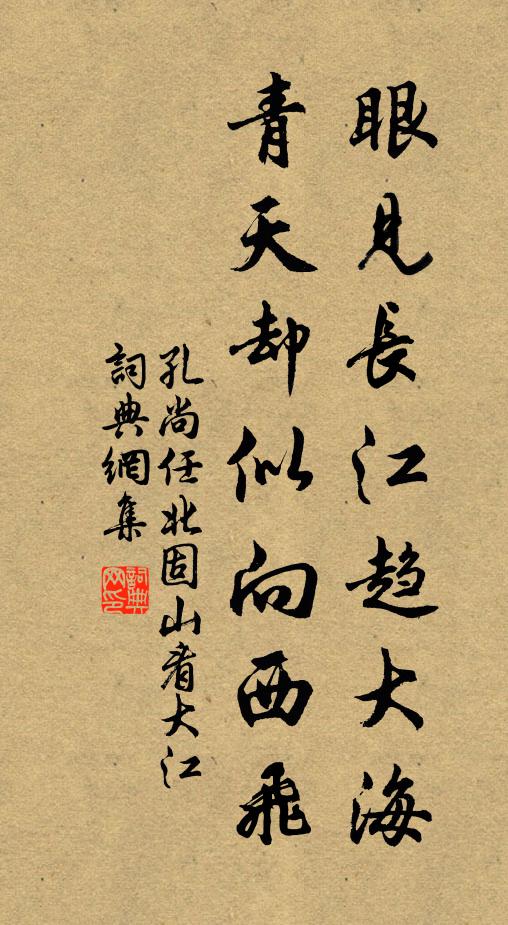 眼見長江趨大海
青天却似向西飛
孔尚任北固山看大江
詞典網集
詞典網印